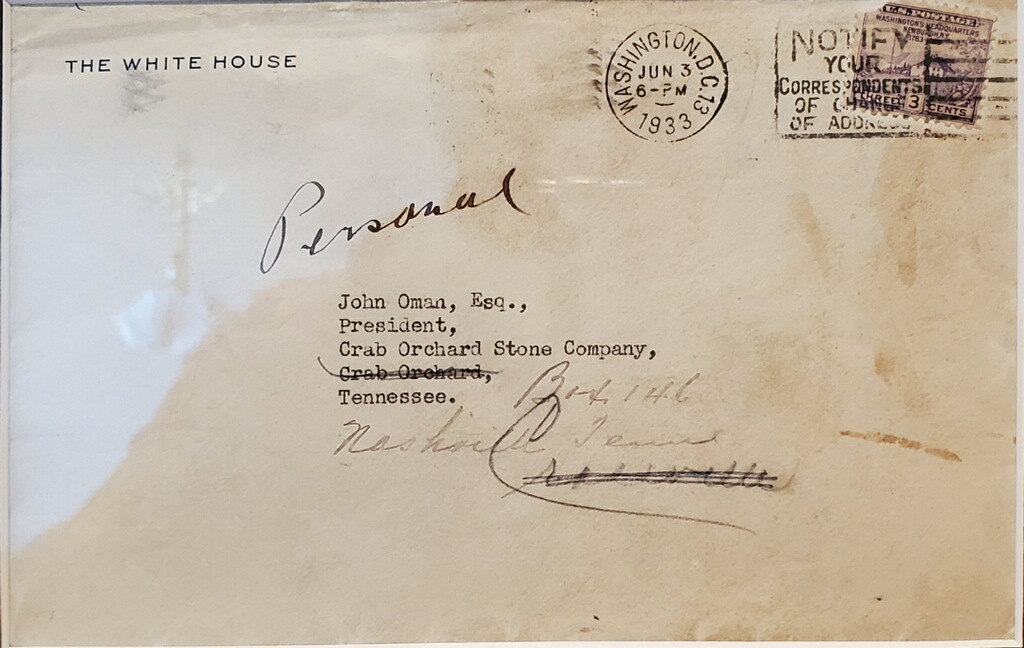 THE WHITE HOUSE
WASHINGTON, D.C. 13
JUN 3
6-PM
1933
NOTIFY
YOUR
CORRESPONDENTS
OF CHANGE
OF ADDRESS
U.S. POSTAGE
WASHINGTON'S HEADQUARTERS
NEWBURGH, N.Y.
1783
THREE 3 CENTS
Personal
John Oman, Esq.,
President,
Crab Orchard Stone Company,
Crab Orchard,
Tennessee.
Box 146
Nashville Tenn